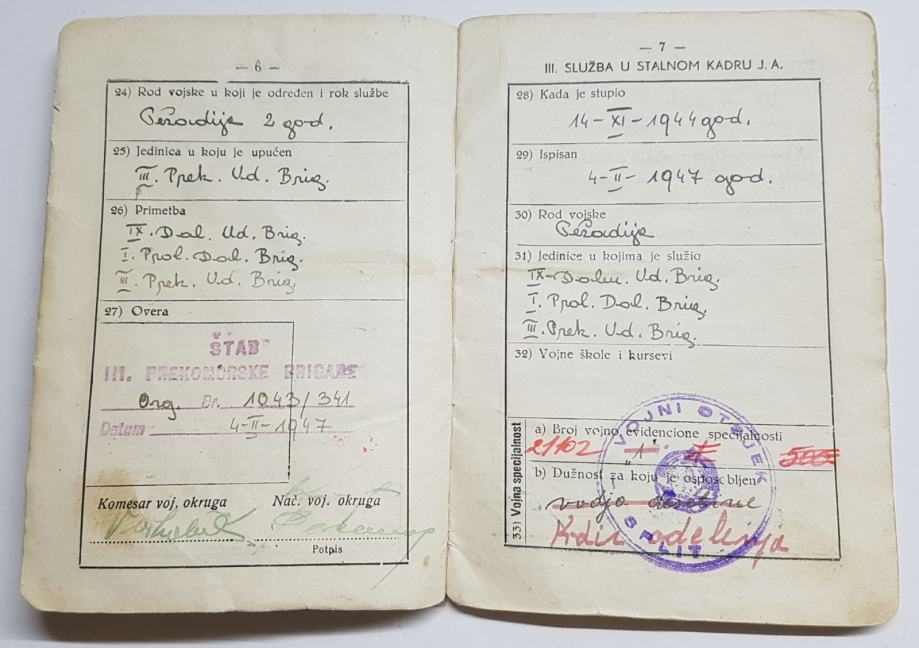 — 6 —
24) Rod vojske u koji je određen i rok službe
Pešadija 2 god.
25) Jedinica u koju je upućen
III. Prek. Ud. Brig.
26) Primetba
IX. Dal. Ud. Brig.
I. Prol. Dal. Brig.
III. Prek. Ud. Brig.
27) Overa
ŠTAB
III. PREKOMORSKE BRIGADE
Org. Br. 1043/341
Datum 4-II-1947
Komesar voj. okruga Nač. voj. okruga
Potpis
— 7 —
III. SLUŽBA U STALNOM KADRU J. A.
28) Kada je stupio
14-XI-1944 god.
29) Ispisan
4-II-1947 god.
30) Rod vojske
Pešadija
31) Jedinice u kojima je služio
IX-Dalm. Ud. Brig.
I. Prol. Dal. Brig.
III. Prek. Ud. Brig.
32) Vojne škole i kursevi
33) Vojna specijalnost
a) Broj vojno evidencione specijalnosti
21102 "1"
b) Dužnost za koju je osposobljen
vodja desetine
Kdir odelenja
VOJNI OTSJEK
SPLIT